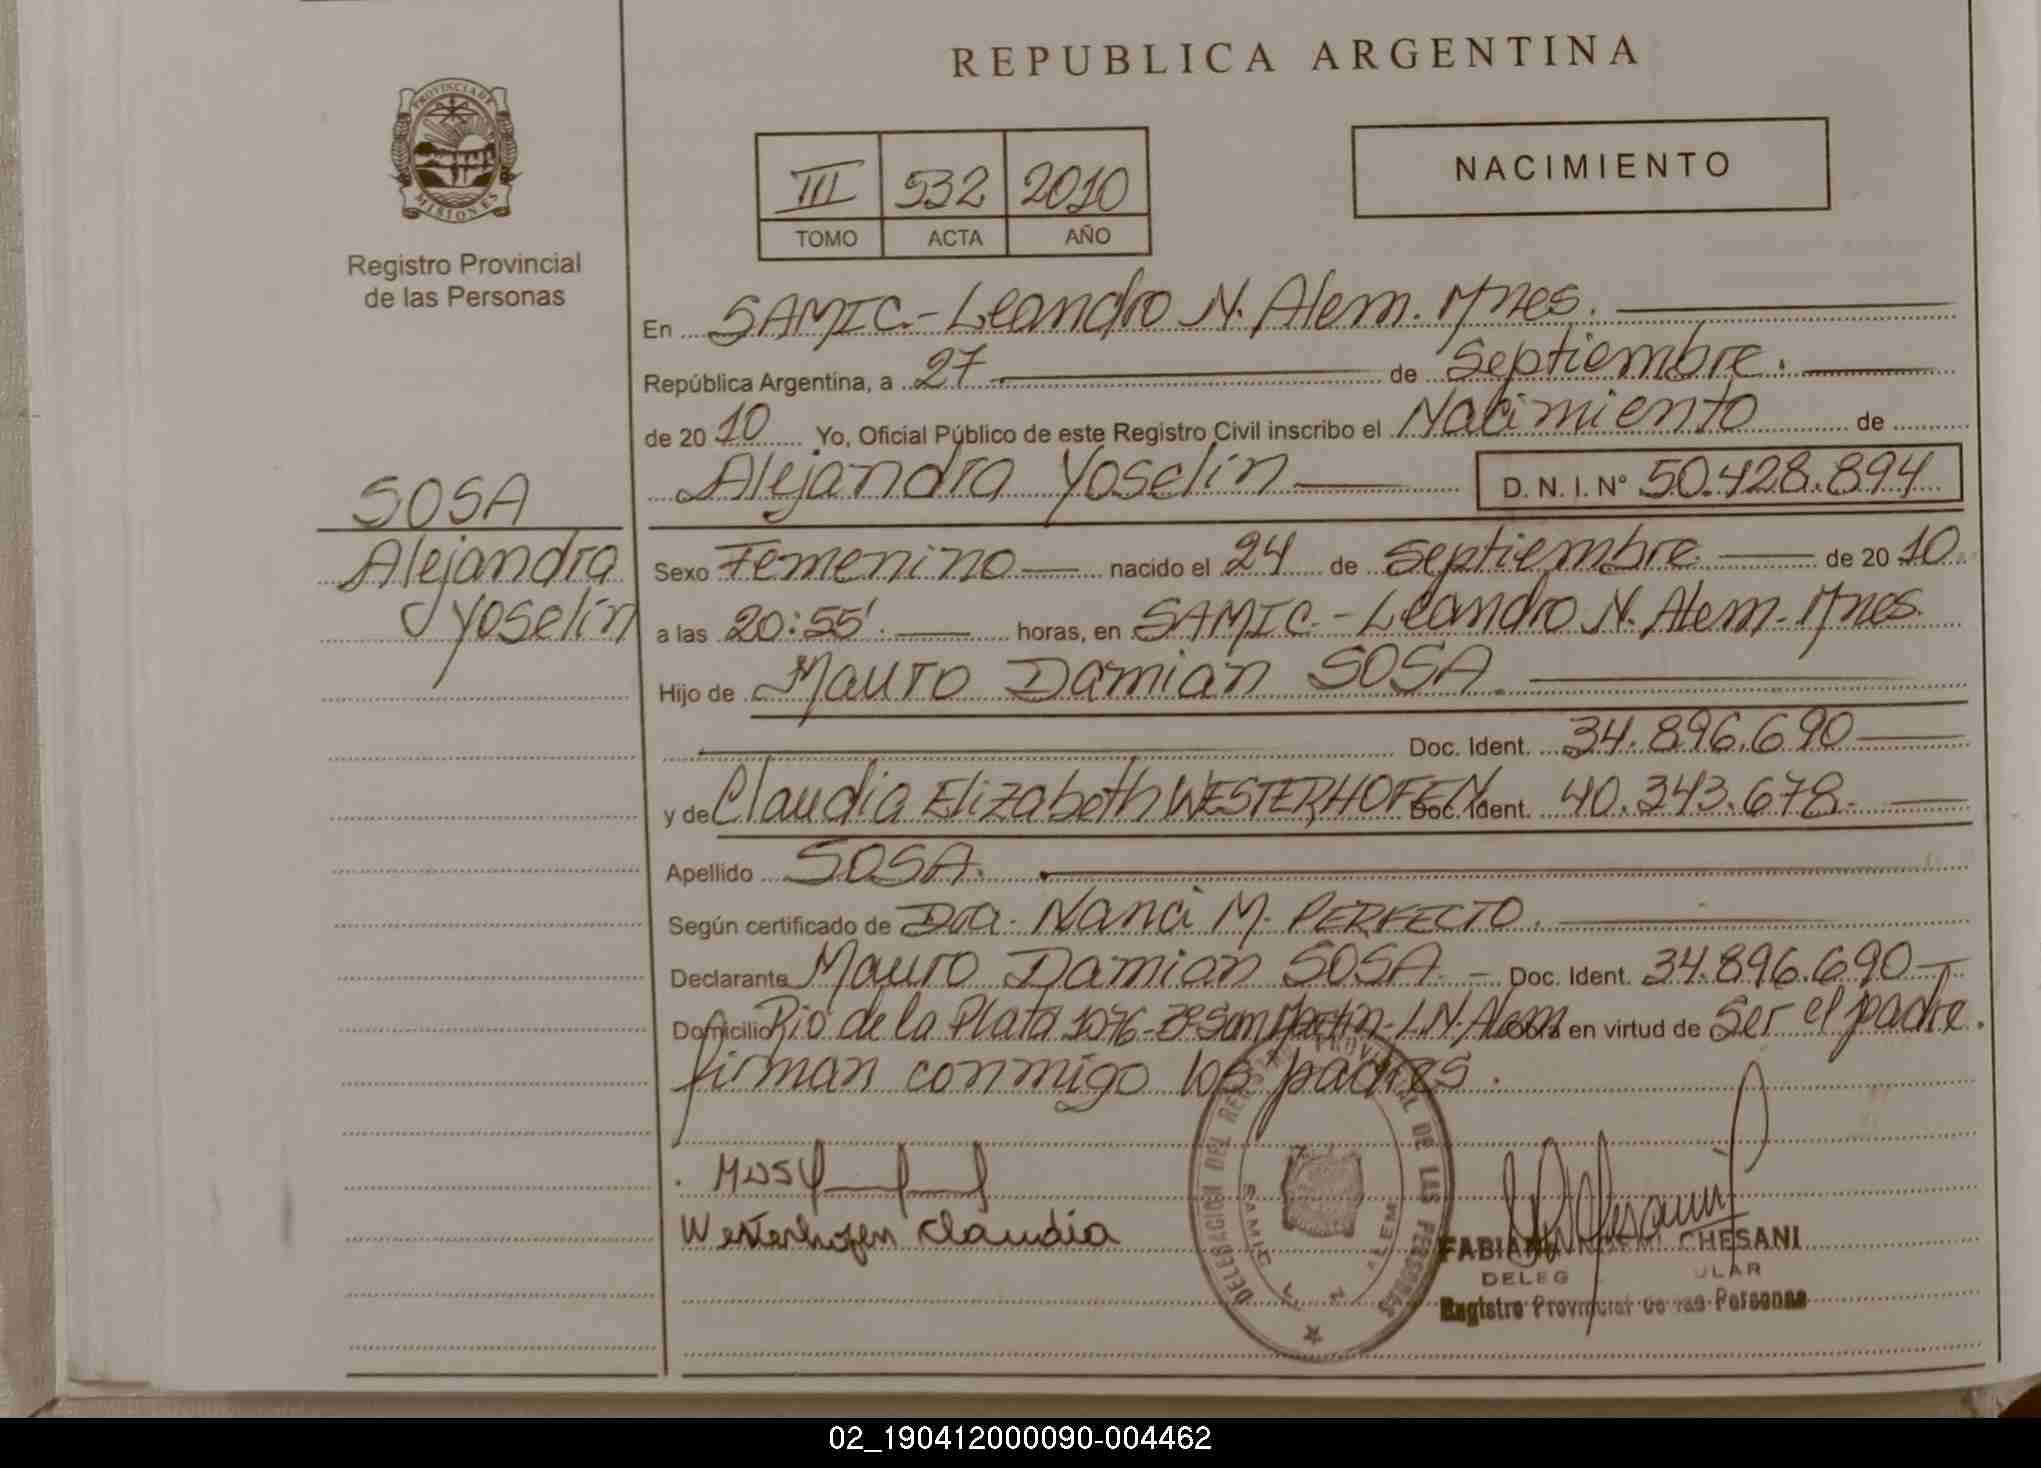 REPUBLICA ARGENTINA
PROVINCIA DE
MISIONES
Registro Provincial
de las Personas
III 532 2010
TOMO ACTA AÑO
NACIMIENTO
En SAMIC.- Leandro N. Alem. Mnes.
República Argentina, a 27 de Septiembre.
de 2010 Yo, Oficial Público de este Registro Civil inscribo el Nacimiento de
Alejandra Yoselin D. N. I. N° 50.428.894
SOSA
Alejandra
Yoselin
Sexo Femenino nacido el 24 de Septiembre de 2010
a las 20:55' horas, en SAMIC.- Leandro N. Alem. Mnes.
Hijo de Mauro Damian SOSA.
Doc. Ident. 34.896.690
y de Claudia Elizabeth WESTERHOFEN Doc. Ident. 40.343.678.
Apellido SOSA.
Según certificado de Dra. Nanci M. PERFECTO.
Declarante Mauro Damian SOSA. - Doc. Ident. 34.896.690
Domicilio Rio de la Plata 1076 - San Martin - L.N. Alem obra en virtud de Ser el padre.
firman conmigo los padres.
Westerhofen Claudia
DELEGACION DEL REGISTRO PROVINCIAL DE LAS PERSONAS
SAMIC L N ALEM
CHESANI
Registro Provincial de las Personas
02_190412000090-004462